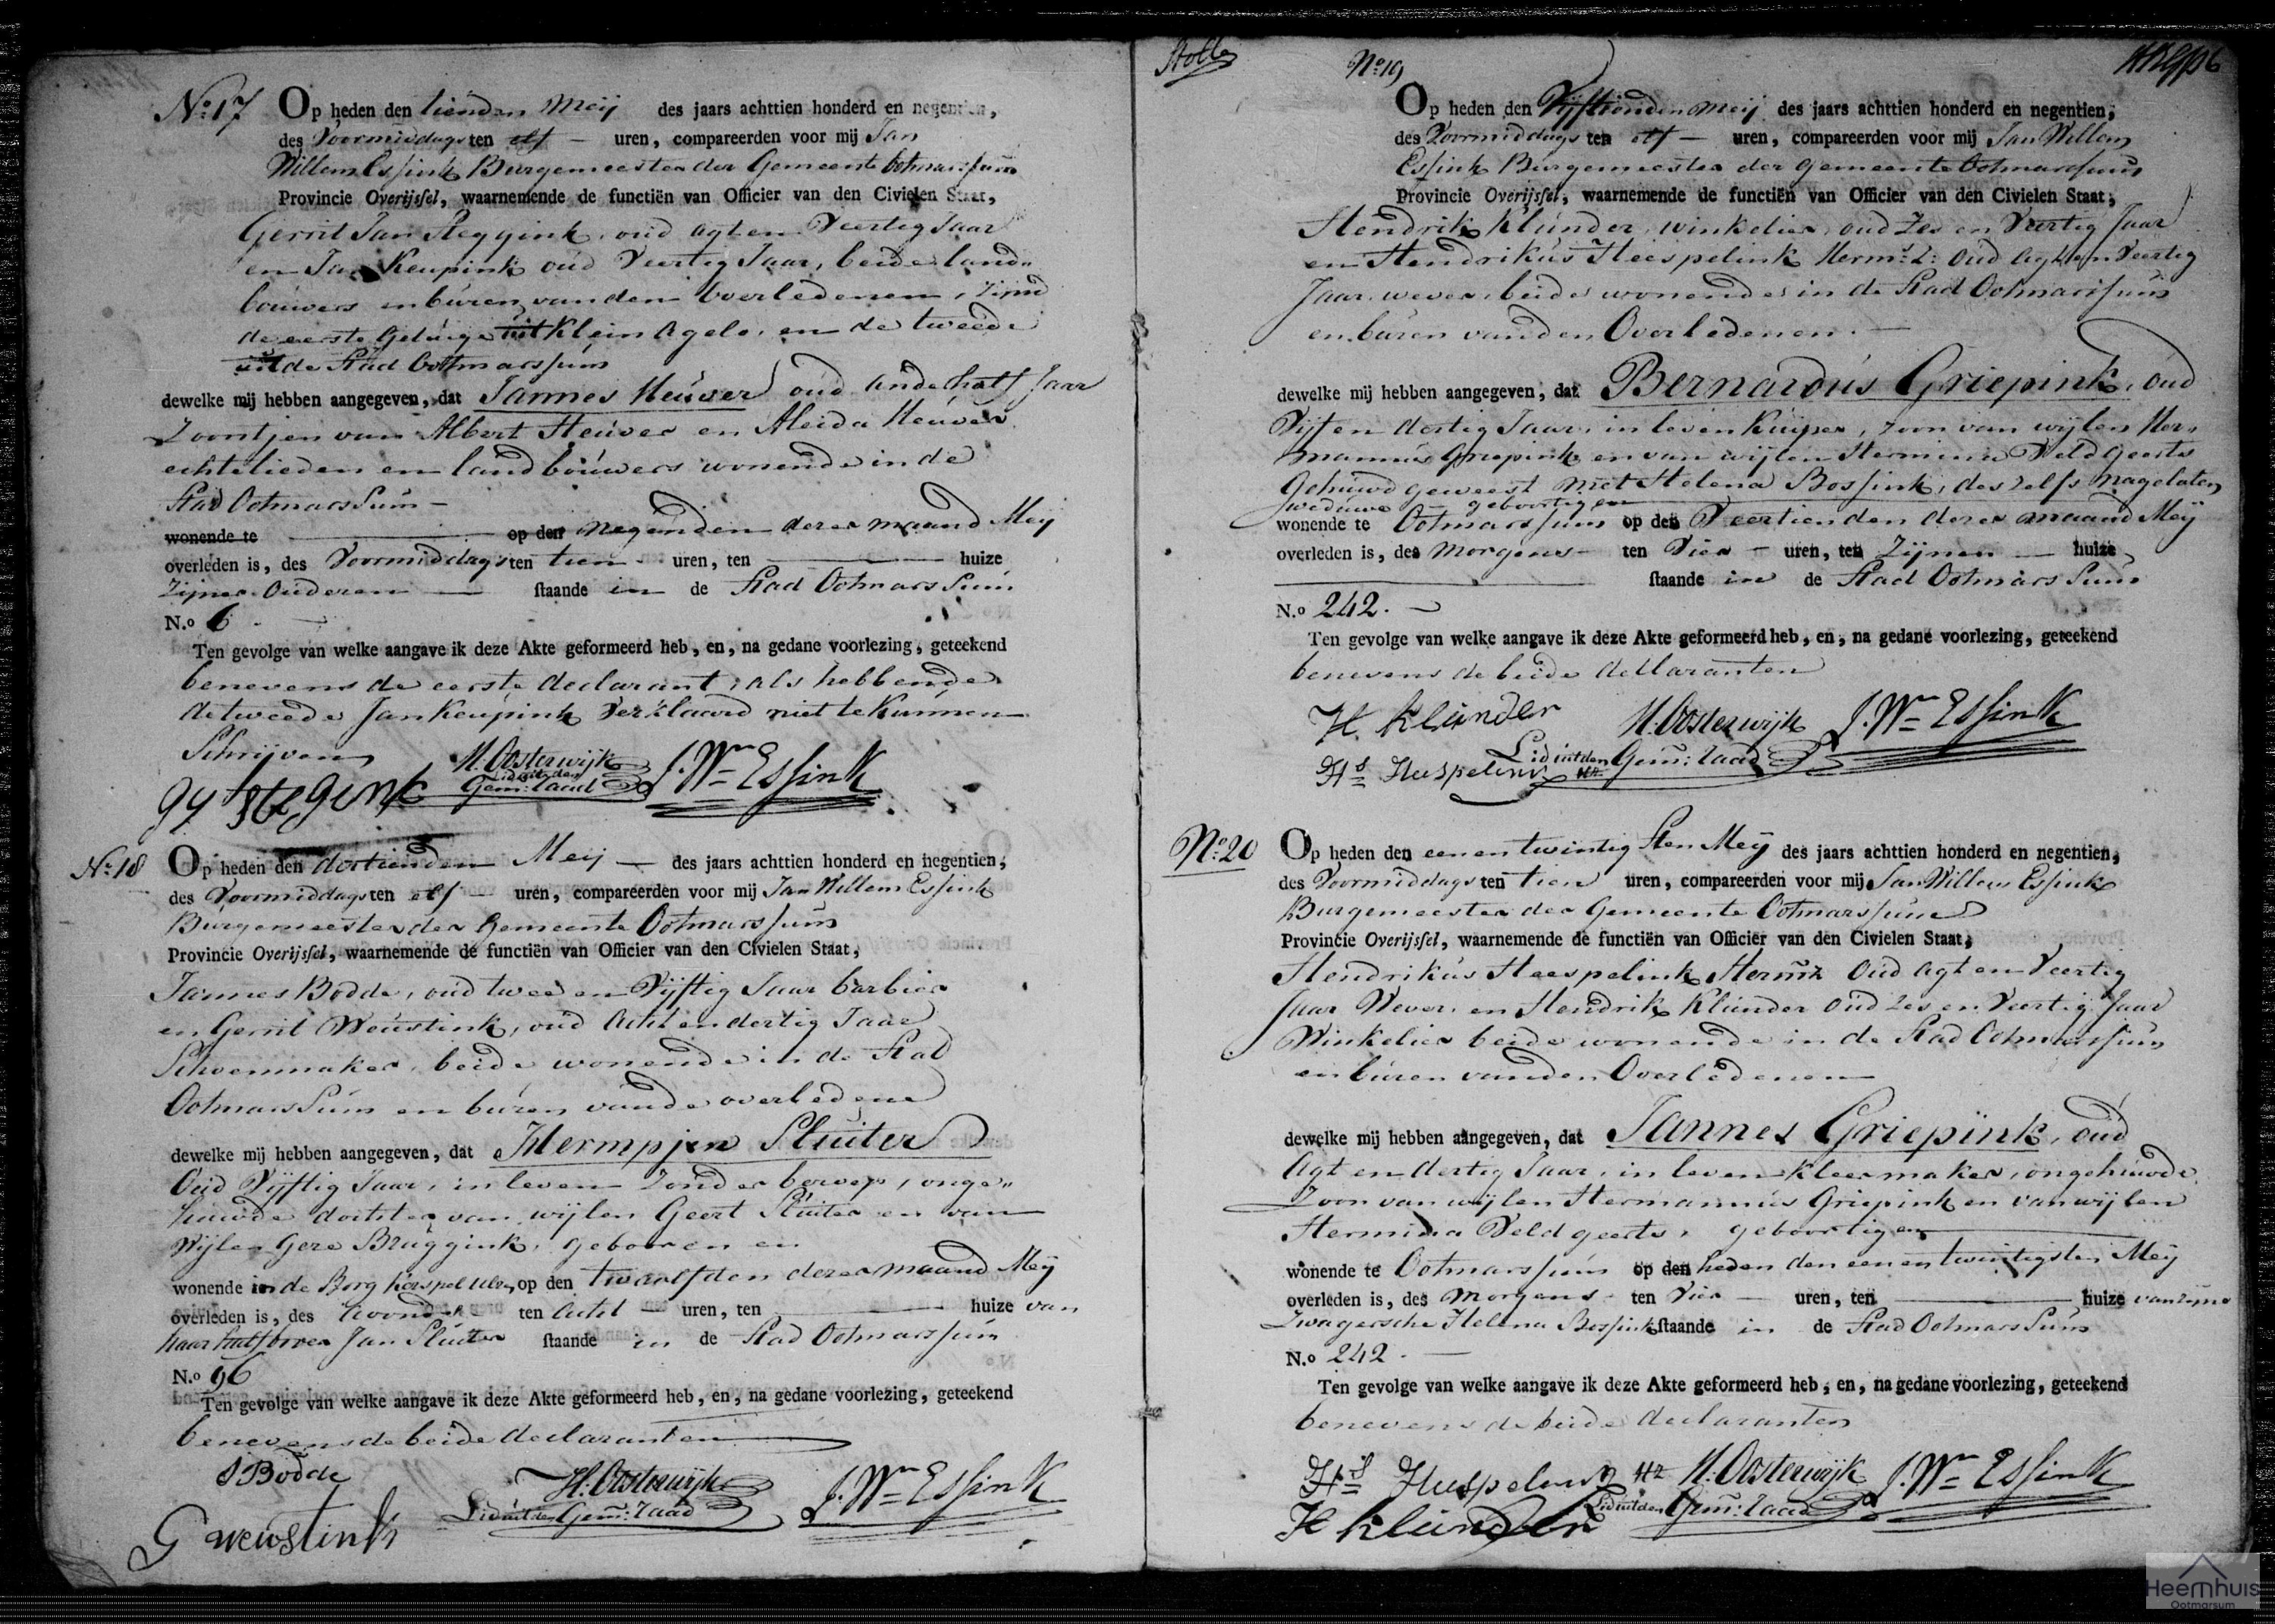 No. 17 Op heden den tienden Meij des jaars achttien honderd en negentien,
des Voormiddags ten elf uren, compareerden voor mij Jan
Willem Essink Burgemeester der Gemeente Ootmarssum
Provincie Overijssel, waarnemende de functiën van Officier van den Civielen Staat,
Gerrit Jan Steggink, oud agt en Veertig Jaar
en Jan Keupink oud Veertig Jaar, beide land-
bouwers en buren van den Overledenen, zijnd
de eerste Getuige uit Klein Agelo, en de tweede
uit de Stad Ootmarssum
dewelke mij hebben aangegeven, dat Jannes Heuver oud anderhalf Jaar
Zoontjen van Albert Heuver en Aleida Heuver
echtelieden en landbouwers wonende in de
Stad Ootmarssum -
wonende te op den negenden dezer maand Meij
overleden is, des Voormiddags ten tien uren, ten huize
Zijner Ouderen staande in de Stad Ootmarssum
N.o 6
Ten gevolge van welke aangave ik deze Akte geformeerd heb, en, na gedane voorlezing, geteekend
benevens de eerste declarant, als hebbende
de tweede Jan Keupink Verklaard niet te Kunnen
Schrijven
H. Oosterwijk
Lid uit den
Gem: raad
J. Wm Essink
No. 18 Op heden den dertienden Meij des jaars achttien honderd en negentien,
des Voormiddags ten elf uren, compareerden voor mij Jan Willem Essink
Burgemeester der Gemeente Ootmarssum
Provincie Overijssel, waarnemende de functiën van Officier van den Civielen Staat,
Jannes Bodde, oud twee en Vijftig Jaar barbier
en Gerrit Weustink, oud Acht en dertig Jaar
Schoenmaker, beide wonende in de Stad
Ootmarssum en buren van de overledene
dewelke mij hebben aangegeven, dat Hermpjen Sluiter
Oud Vijftig Jaar, in leven Zonder beroep, onge-
huwde dochter van wijlen Geert Sluiter en van
Wijlen Geze Bruggink, gebooren en
wonende in de Borg Kerspel Ulzen op den twaalfden dezer maand Meij
overleden is, des Avonds ten Acht uren, ten huize van
haar halfbroer Jan Sluiter staande in de Stad Ootmarssum
N.o 96
Ten gevolge van welke aangave ik deze Akte geformeerd heb, en, na gedane voorlezing, geteekend
benevens de beide declaranten
J Bodde
H. Oosterwijk
Lid uit den Gem: raad
J. Wm Essink
G weustink
No. 19
Op heden den Vijftienden Meij des jaars achttien honderd en negentien,
des Voormiddags ten elf uren, compareerden voor mij Jan Willem
Essink Burgemeester der Gemeente Ootmarssum
Provincie Overijssel, waarnemende de functiën van Officier van den Civielen Staat,
Hendrik Klunder, winkelier, oud Zes en Veertig Jaar
en Hendrikus Heespelink Herm: Z: Oud Agt en Veertig
Jaar, wever, beide wonende in de Stad Ootmarssum
en buren van den Overledenen.
dewelke mij hebben aangegeven, dat Bernardus Griepink, oud
Vijf en dertig Jaar, in leven Kuiper, zoon van wijlen Her-
mannus Griepink en van wijlen Hermina Veldgeerts
Gehuwd geweest met Helena Bossink, deszelfs nagelaten
weduwe geboortig en
wonende te Ootmarssum op den Veertienden dezer maand Meij
overleden is, des Morgens ten Vier uren, ten Zijnen huize
staande in de Stad Ootmarssum
N.o 242.
Ten gevolge van welke aangave ik deze Akte geformeerd heb, en, na gedane voorlezing, geteekend
benevens de beide declaranten
H. Klunder H. Oosterwijk J. Wm Essink
Hs Heespelink Hz Lid uit den Gem: raad
No. 20 Op heden den een en twintigsten Meij des jaars achttien honderd en negentien,
des Voormiddags ten tien uren, compareerden voor mij Jan Willem Essink
Burgemeester der Gemeente Ootmarssum
Provincie Overijssel, waarnemende de functiën van Officier van den Civielen Staat,
Hendrikus Heespelink Hermz Oud Agt en Veertig
Jaar Wever, en Hendrik Klunder Oud Zes en Veertig Jaar
Winkelier beide wonende in de Stad Ootmarssum
en buren van den Overledenen
dewelke mij hebben aangegeven, dat Jannes Griepink, oud
Agt en dertig Jaar, in leven kleermaker, ongehuwde
Zoon van wijlen Hermannus Griepink en van wijlen
Hermina Veldgeerts, geboortig en
wonende te Ootmarssum op den heden den een en twintigsten Meij
overleden is, des Morgens ten Vier uren, ten huize van zijne
Zwagersche Helena Bossink staande in de Stad Ootmarssum
N.o 242.
Ten gevolge van welke aangave ik deze Akte geformeerd heb, en, na gedane voorlezing, geteekend
benevens de beide declaranten
Hs Heespelink Hz H. Oosterwijk J. Wm Essink
H Klunder Lid uit den Gem: raad
Heemhuis
Ootmarsum